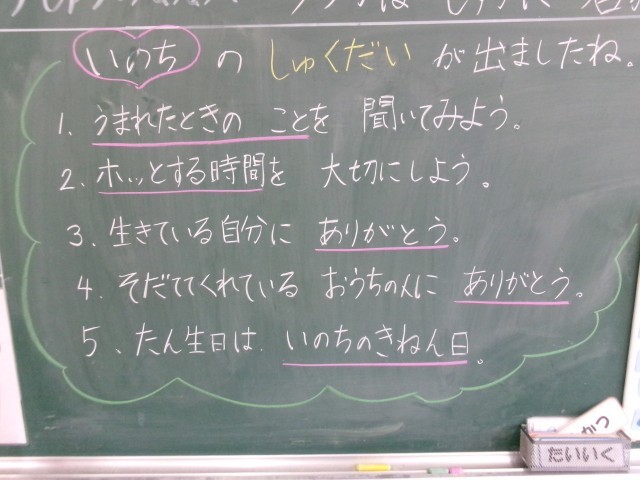 いのちの しゅくだい が出ましたね。
1. うまれたときの ことを 聞いてみよう。
2. ホッとする時間を 大切にしよう。
3. 生きている自分に ありがとう。
4. そだててくれている おうちの人に ありがとう。
5、たん生日は いのちのきねん日。
たいいく